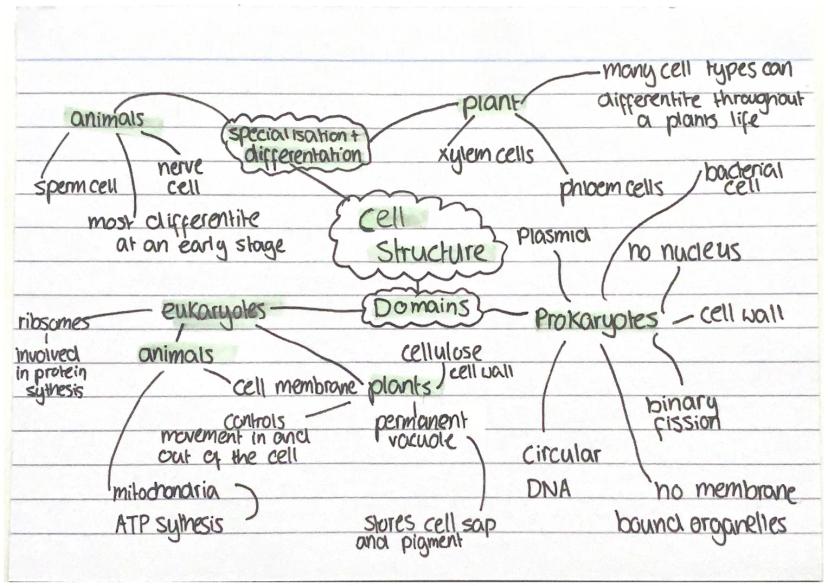 many cell types can
differentite throughout
a plants life
plant
animals
specialisation +
differentation
xylem cells
phloem cells
nerve
cell
sperm cell
most differentite
at an early stage
bacterial
cell
Cell
Structure
Plasmid
no nucleus
eukaryotes
Domains
Prokaryotes
cell wall
ribsomes
involved
in protein
sythesis
animals
cellulose
cell wall
cell membrane
plants
controls
movement in and
out of the cell
permanent
vacuole
binary
fission
circular
DNA
mitochondria
ATP sythesis
stores cell sap
and pigment
no membrane
bound organelles